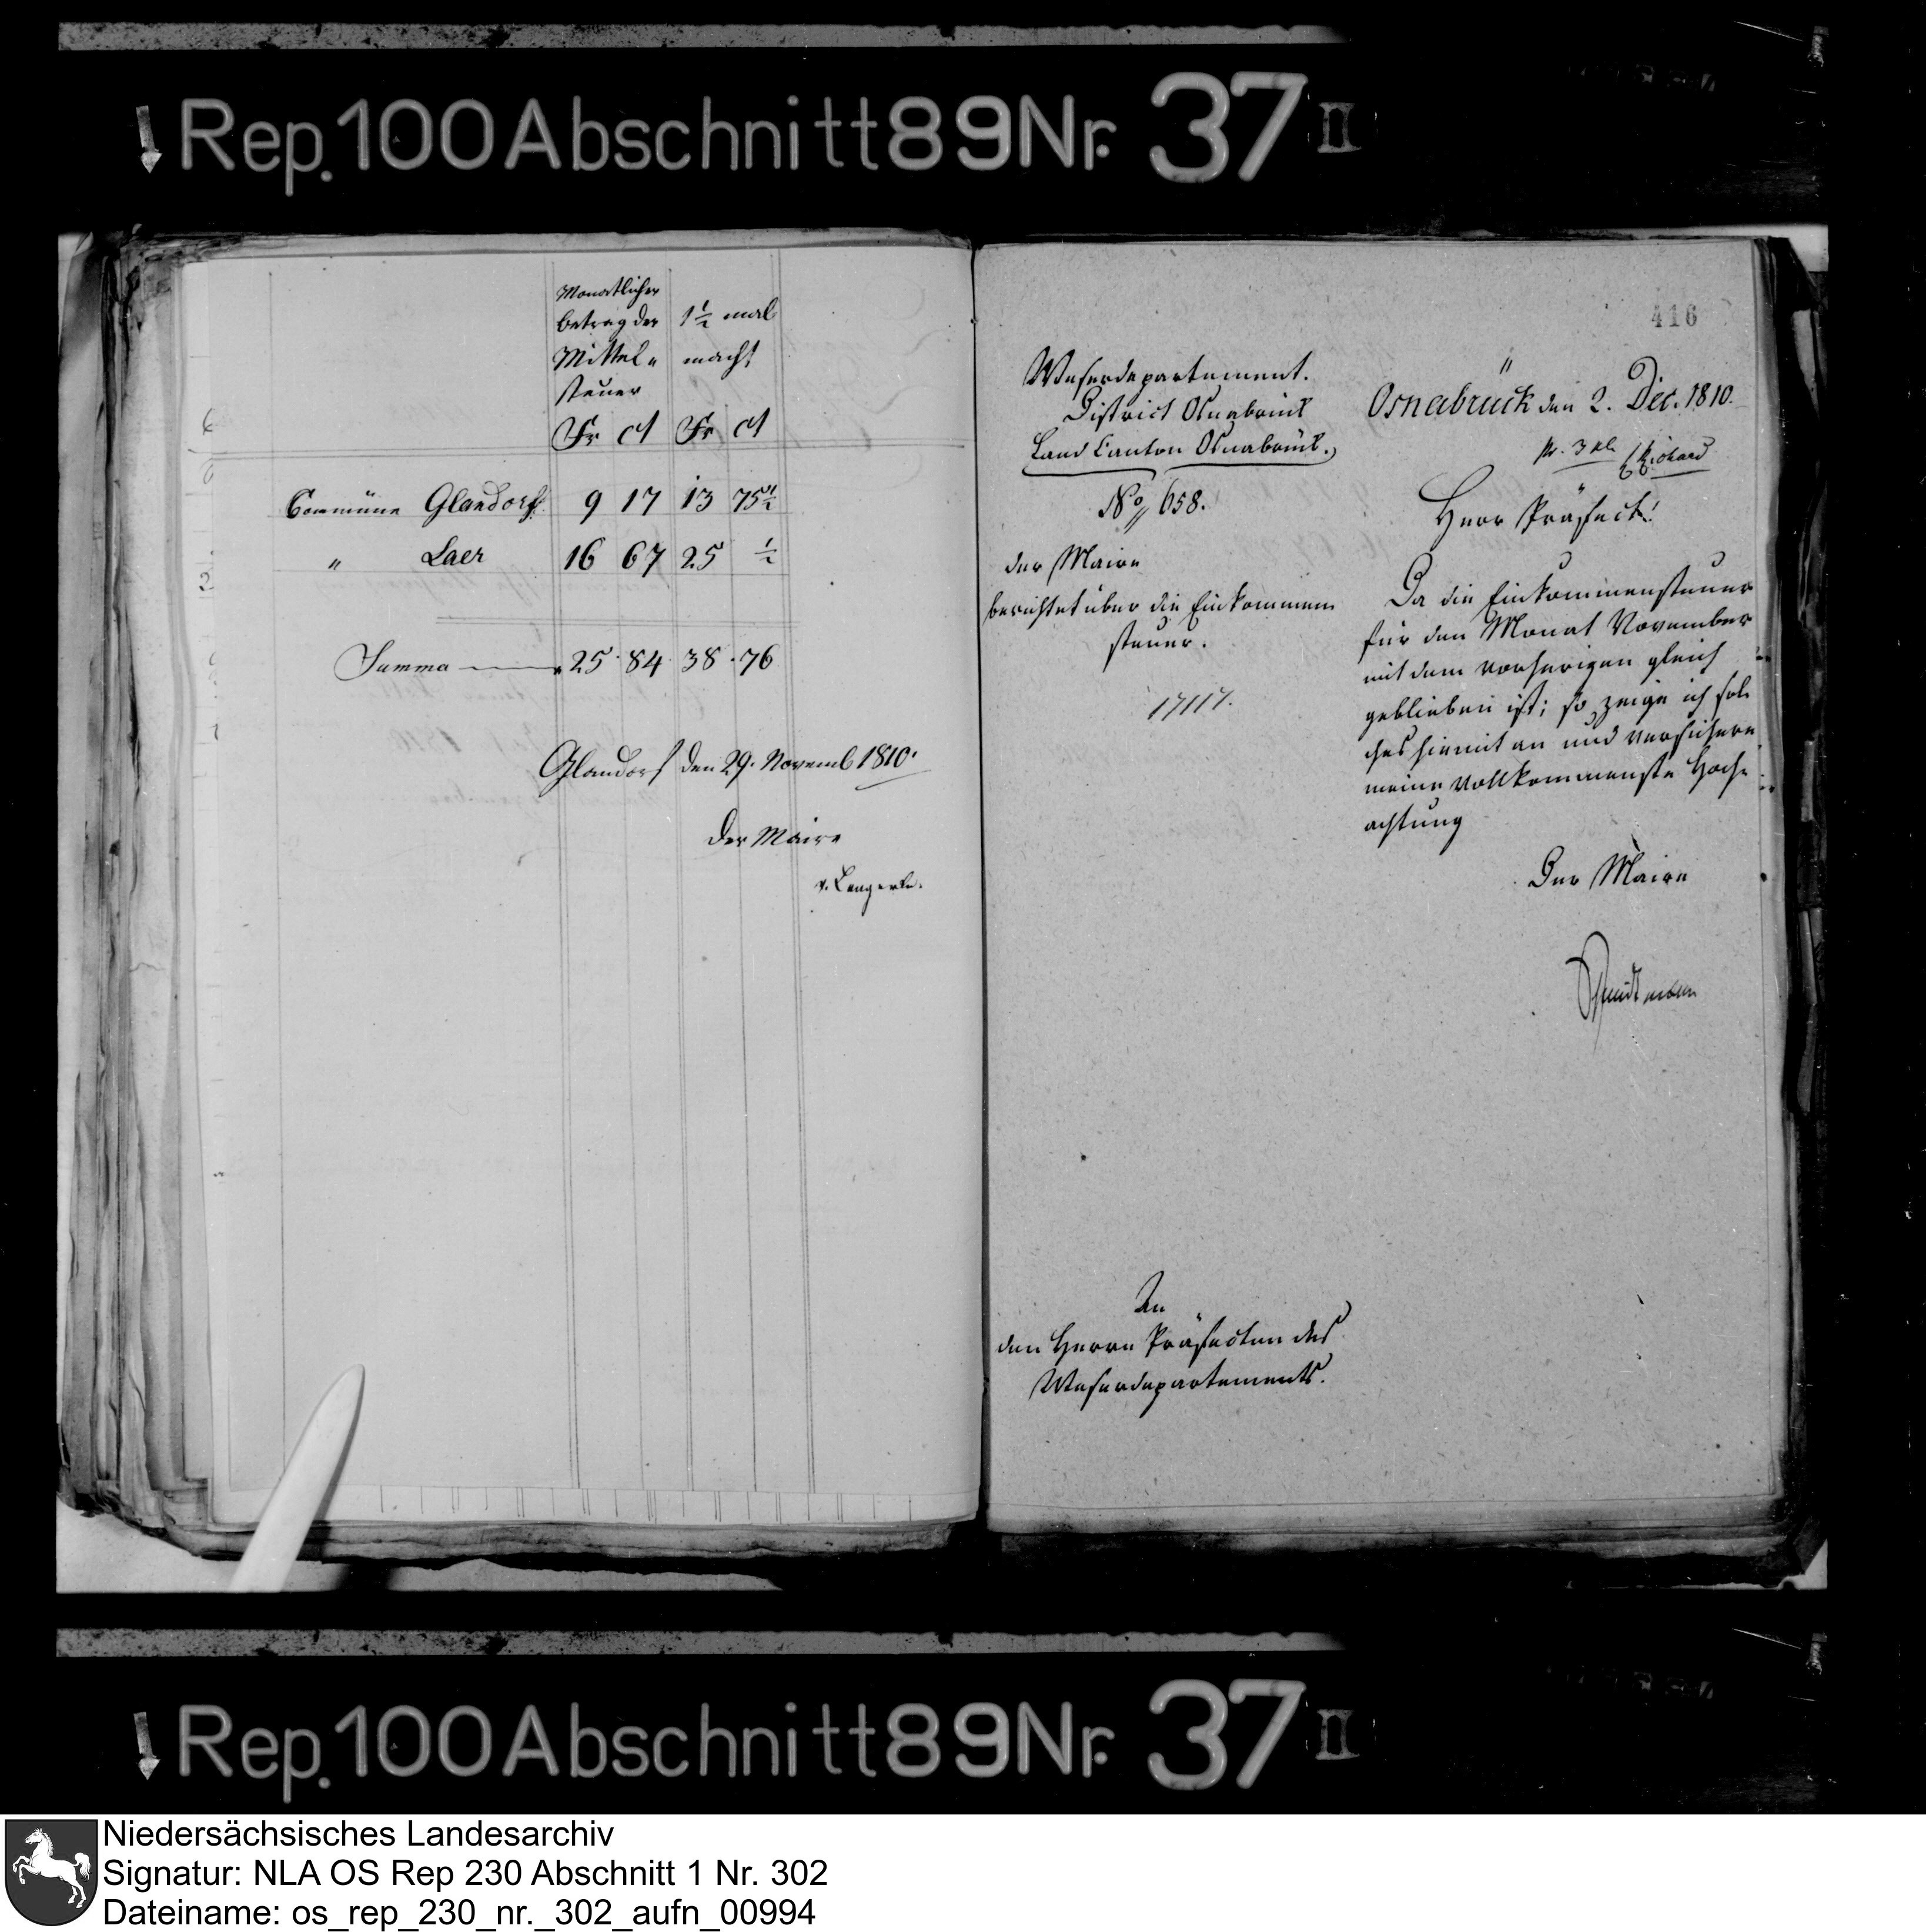 Rep. 100 Abschnitt 89 Nr. 37 II
Monatlicher
betrag der
Mittel„
steuer
1 1/2 mal
macht
Fr Ct Fr Ct
Commüne Glandorf 9 17 13 75 1/2
„ Laer 16 67 25 1/2
Summa 25 84 38 76
Glandorf den 29. Novemb 1810.
Der Maire
v. Lengerke.
416
Weserdepartement.
District Osnabrück
Land Canton Osnabrück.
No 658.
der Maire
berichtet über die Einkommen
steuer.
17117.
Osnabrück den 2. Dec. 1810.
pr. 3
Herr Präfect!
Da die Einkommensteuer
für den Monat November
mit dem vorherigen gleich
geblieben ist; so zeige ich sol„
ches hiemit an und versichere
meine vollkommenste Hoch„
achtung
Der Maire
An
den Herrn Präfecten des
Weserdepartements.
Rep. 100 Abschnitt 89 Nr. 37 II
Niedersächsisches Landesarchiv
Signatur: NLA OS Rep 230 Abschnitt 1 Nr. 302
Dateiname: os_rep_230_nr._302_aufn_00994